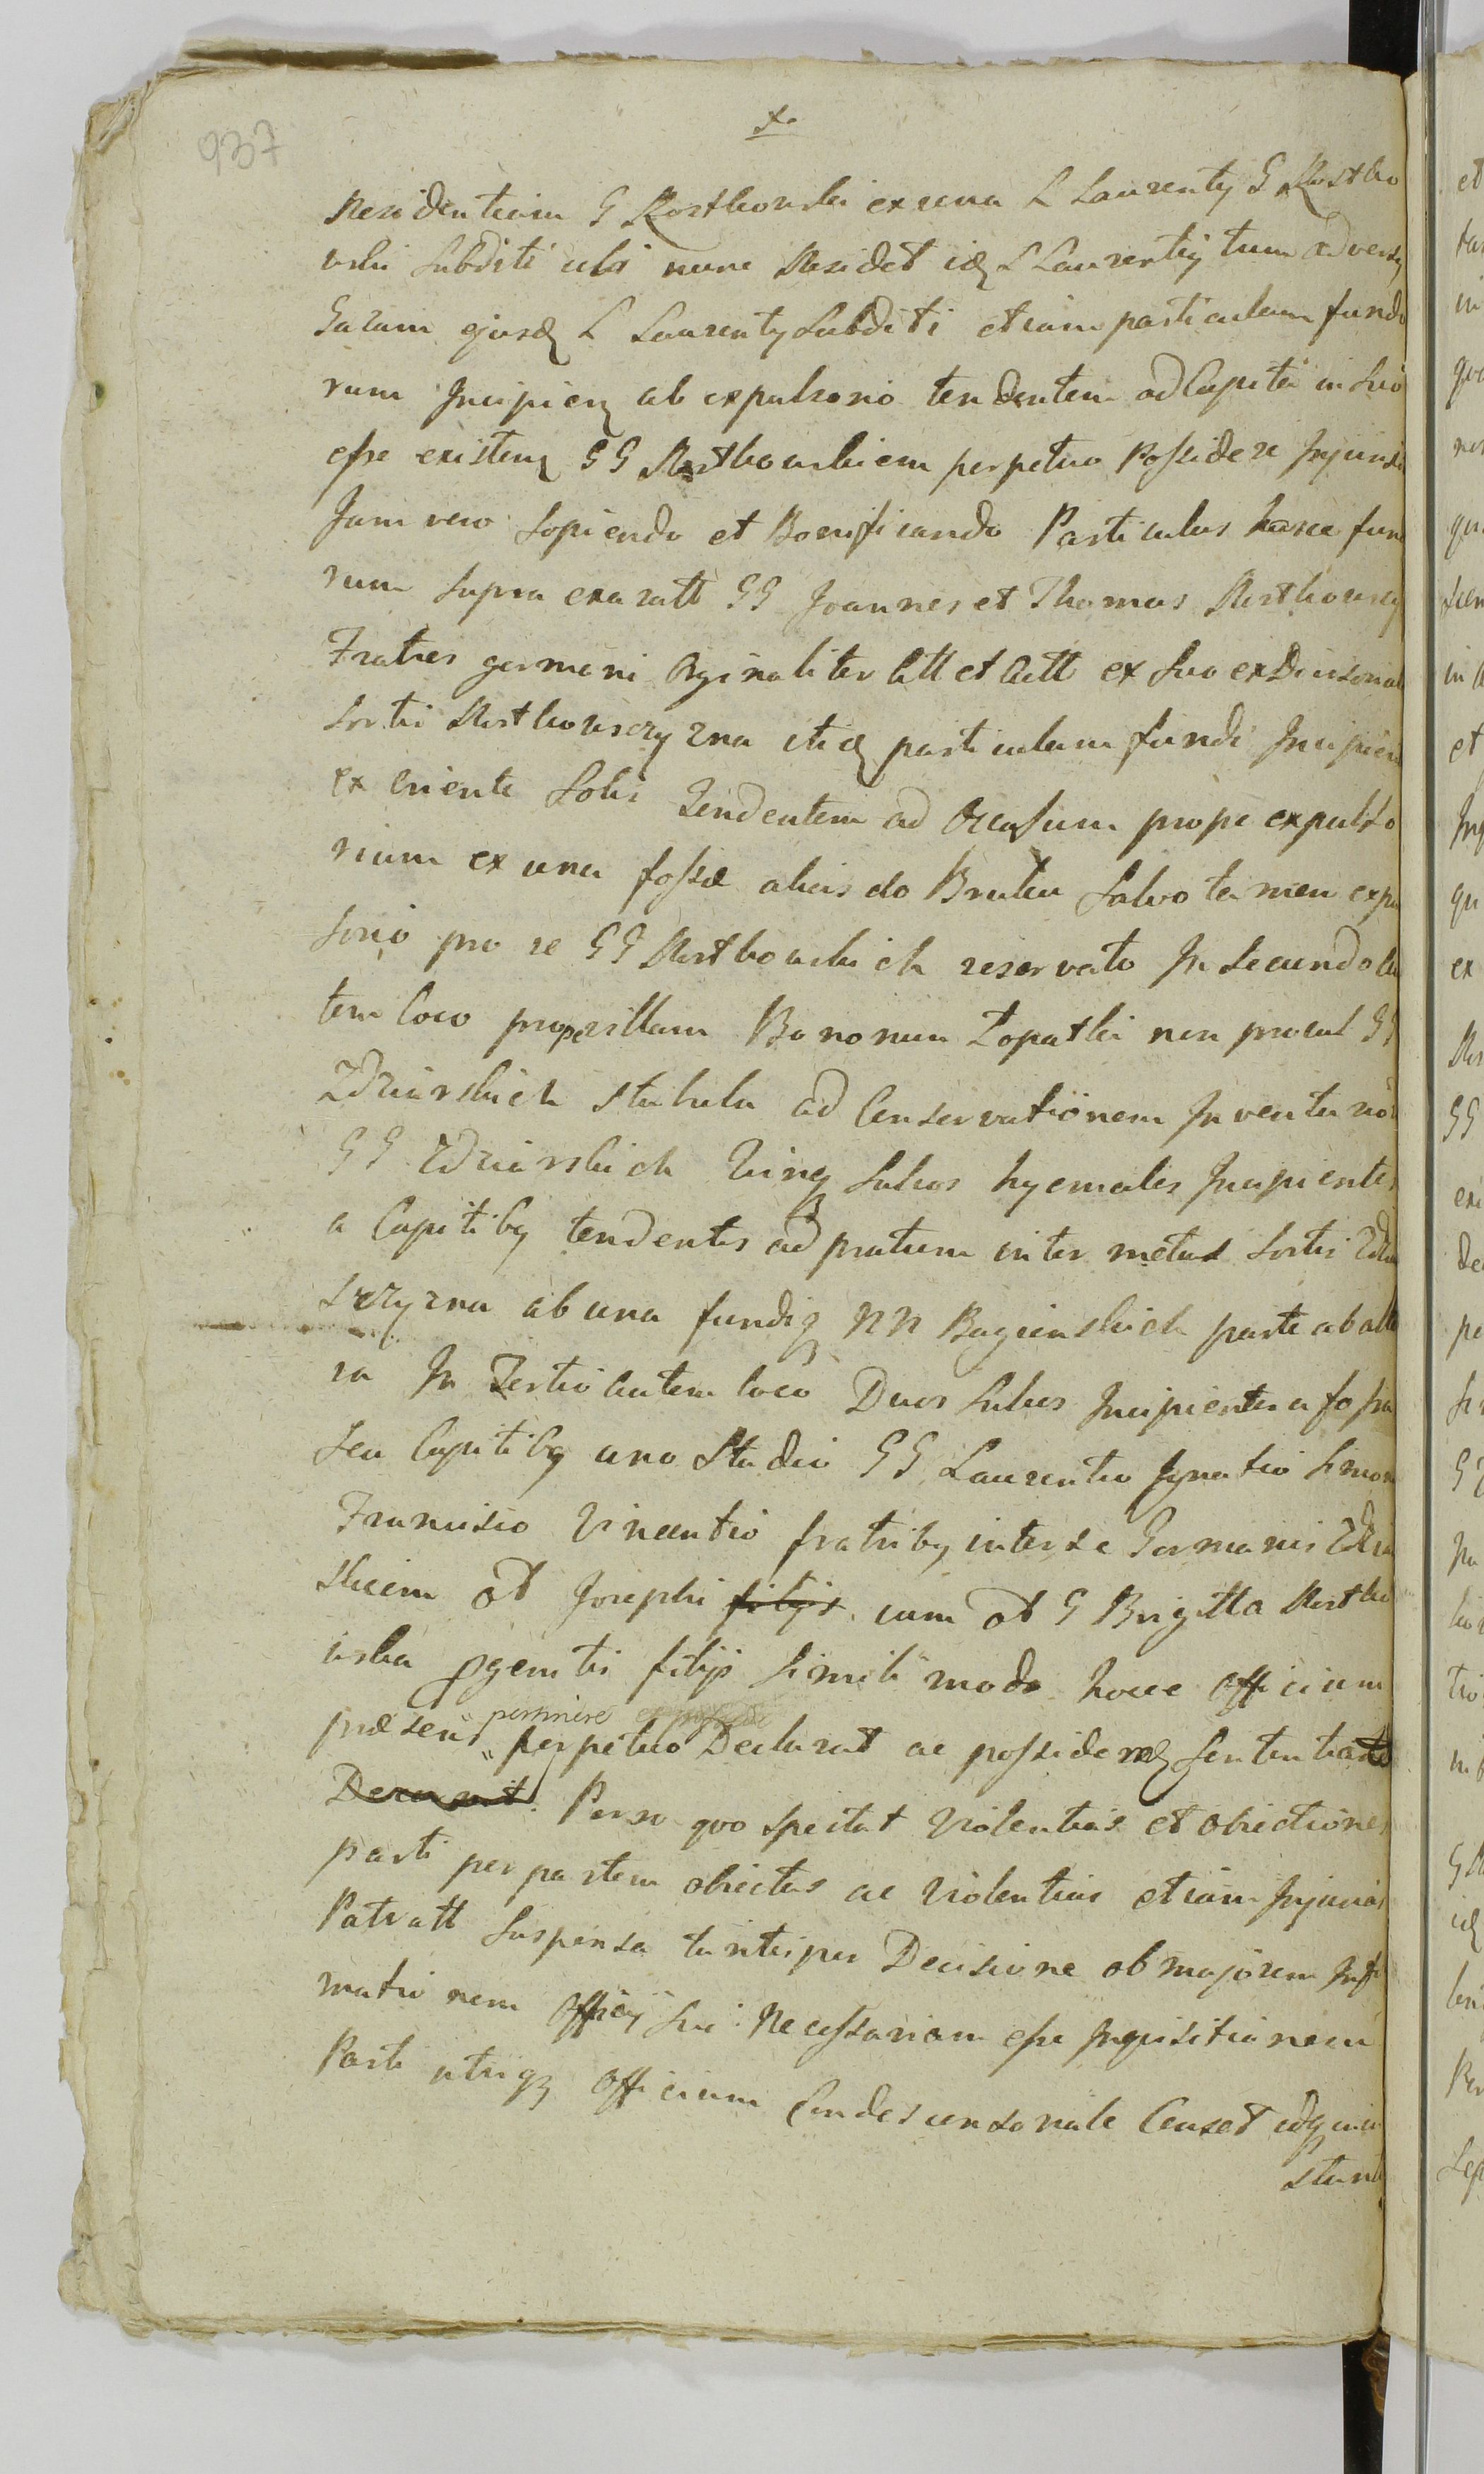 937
Residentiam G Rostkowski ex una L Laurenty G Rostko
wski Subditi ubi nunc Residet idq L Laurentiy tum adversq
Garam ejusq L Laurenty Subditi etiam particulam fundo
rum Incipienq ab expulsorio tendentem ad Capita in Suo
esse existenq GG Rostkowskiem perpetuo Possidere Injunxi
Jam vero Sopiendo et Bonificando Particulas hasce fun
rum Supra exaratt GG Joannes et Thomas Rostkowscy
Fratres germani Orginaliter Att et Citt ex Suo ex Divisionali
Sortis Rostkowszczyzna itiq particulam fundi Incipien
ex Oriente Solis Tendentem ad Occasum prope expulso
rium ex una fossæ alias do Bruku Salvo tamen expu
sorio pro se GG Rostkowskich reservato In Secundo au
tem loco prope villam Bonorum Łopatki non procul GG
Zdziarskich Stabula ad Conservationem Inventa
GG Zdziarskich Sulcos hyemales Incipientes
a Capitibq tendentes ad pratum inter metas Sortis
szczyzna ab una fundiq NN Bagienskich parte ab alte
ra In Tertio autem loco Duos Sulcos Incipientes a fossa
Seu Capitibq uno Stadio GG Laurentio Ignatio Simon
Francisco Vincentio fratribq inter se Germanis Zdzia
skiem ot Josephi filijs cum ot G Brigitta Rostko
wska pgenitis filijs Simili modo hocce Officium
præsens perpetuo Declarat ac possidenq Sententia
Decernit. Porro quo Spectat Violentias et Obiectiones
parti per partem obiectas ac Violentias etiam Injurias
Patratt Suspensa tantisper Decisione ob majorem Infor
mationem Officij Sui Necessariam esse Inquisitionem
Parti utriqz Officium Condescensonale Censet idq
stanti